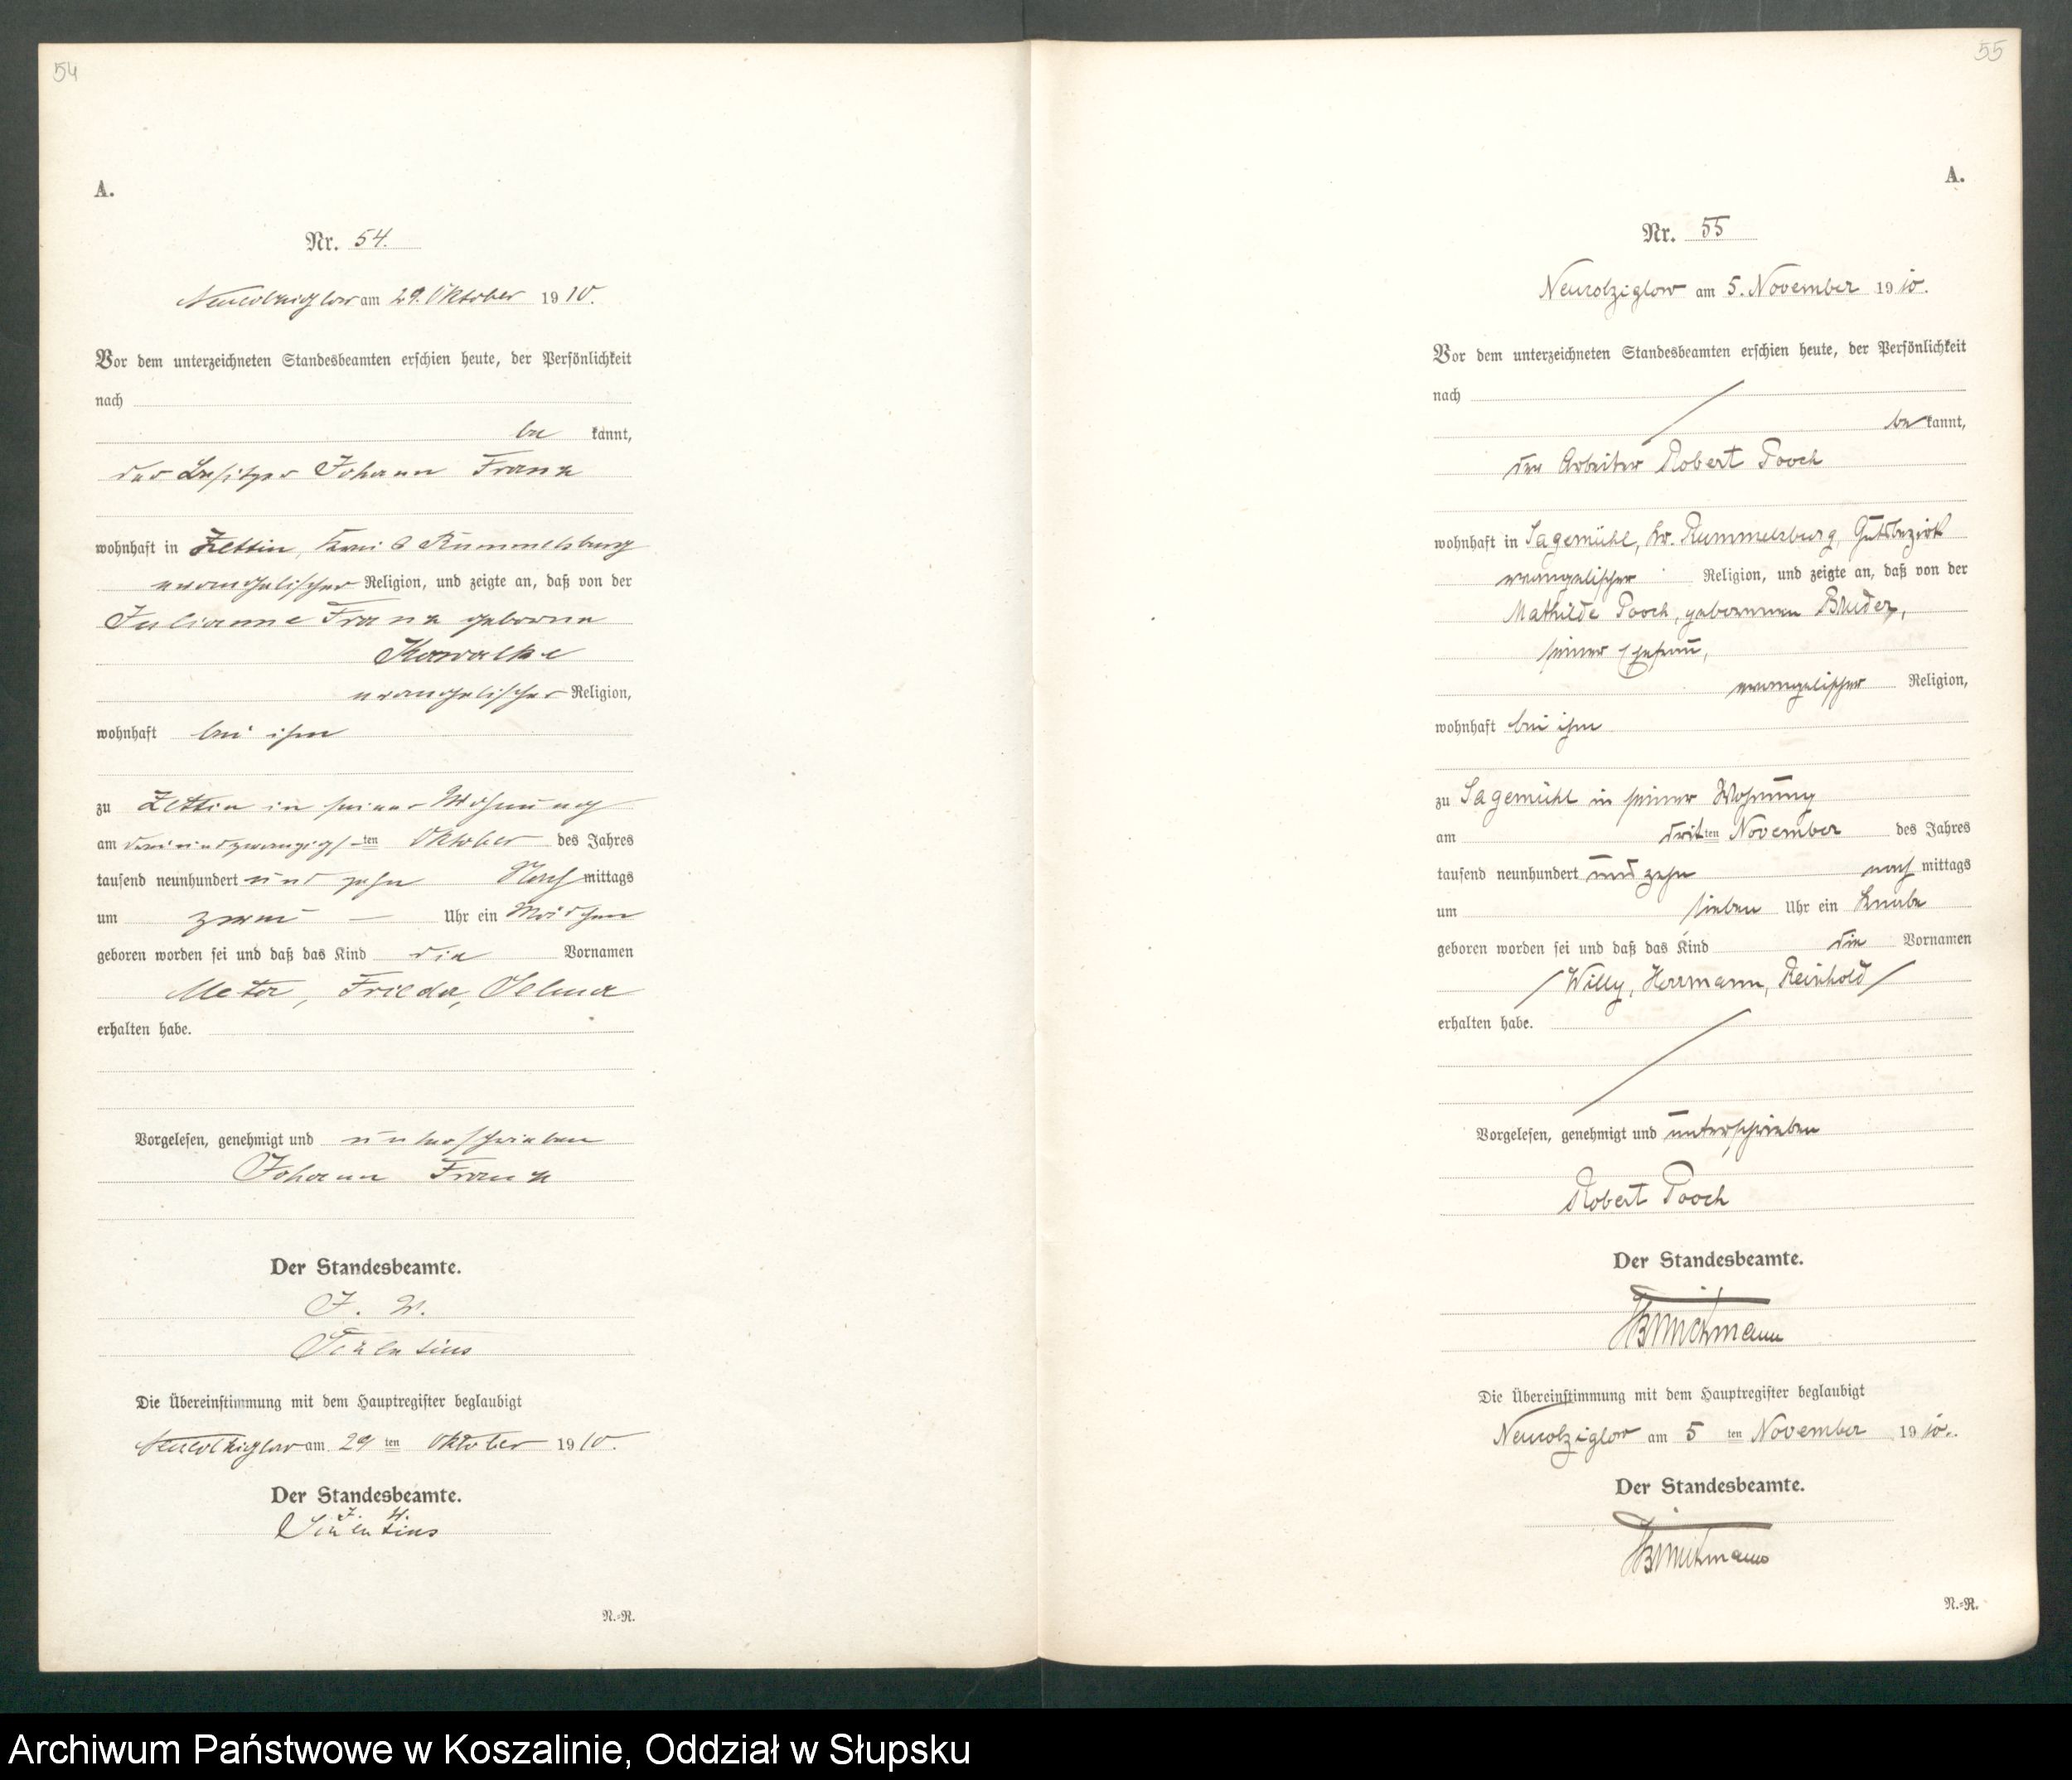 54
A.
Nr. 54.
Neukolziglow am 29. Oktober 1910.
Vor dem unterzeichneten Standesbeamten erschien heute, der Persönlichkeit
nach
be kannt,
der Besitzer Johann Franz
wohnhaft in Zettin, Kreis Rummelsburg
evangelischer Religion, und zeigte an, daß von der
Julianne Franz geborne
Kowalke
evangelischer Religion,
wohnhaft bei ihm
zu Zettin in seiner Wohnung
am dreiundzwanzigsten Oktober des Jahres
tausend neunhundert und zehn Nachmittags
um zwei — Uhr ein Mädchen
geboren worden sei und daß das Kind die Vornamen
Meta, Frieda, Selma
erhalten habe.
Vorgelesen, genehmigt und unterschrieben
Johann Franz
Der Standesbeamte.
J. V.
Die Übereinstimmung mit dem Hauptregister beglaubigt
Neukolziglow am 29 ten Oktober 1910.
Der Standesbeamte.
J. V.
N.=R.
55
A.
Nr. 55
Neukolziglow am 5. November 1910.
Vor dem unterzeichneten Standesbeamten erschien heute, der Persönlichkeit
nach
be kannt,
der Arbeiter Robert Pooch
wohnhaft in Sagemühl, Kr. Rummelsburg, Gutsbezirk
evangelischer Religion, und zeigte an, daß von der
Mathilde Pooch, geborenen Bruder,
seiner Ehefrau,
evangelischer Religion,
wohnhaft bei ihm
zu Sagemühl in seiner Wohnung
am dritten November des Jahres
tausend neunhundert und zehn nachmittags
um sieben Uhr ein Knabe
geboren worden sei und daß das Kind die Vornamen
Willy, Herrmann, Reinhold
erhalten habe.
Vorgelesen, genehmigt und unterschrieben
Robert Pooch
Der Standesbeamte.
Die Übereinstimmung mit dem Hauptregister beglaubigt
Neukolziglow am 5 ten November 1910.
Der Standesbeamte.
N.=R.
Archiwum Państwowe w Koszalinie, Oddział w Słupsku